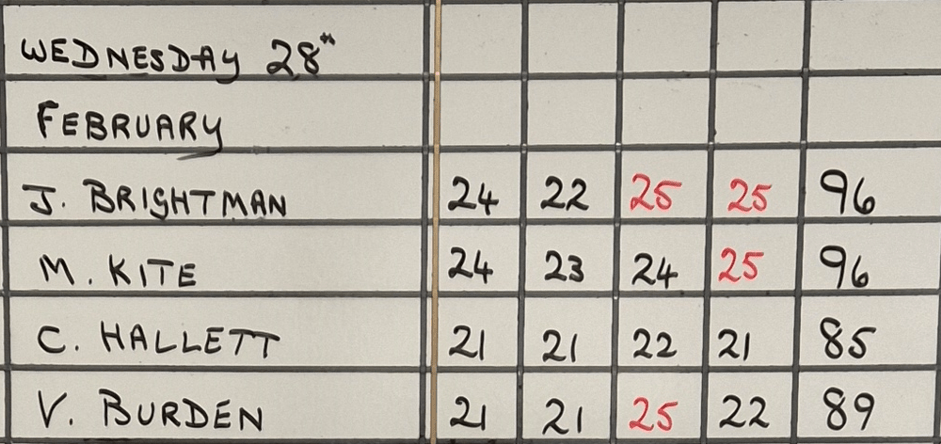 WEDNESDAY 28th
FEBRUARY
J. BRIGHTMAN 24 22 25 25 96
M. KITE 24 23 24 25 96
C. HALLETT 21 21 22 21 85
V. BURDEN 21 21 25 22 89